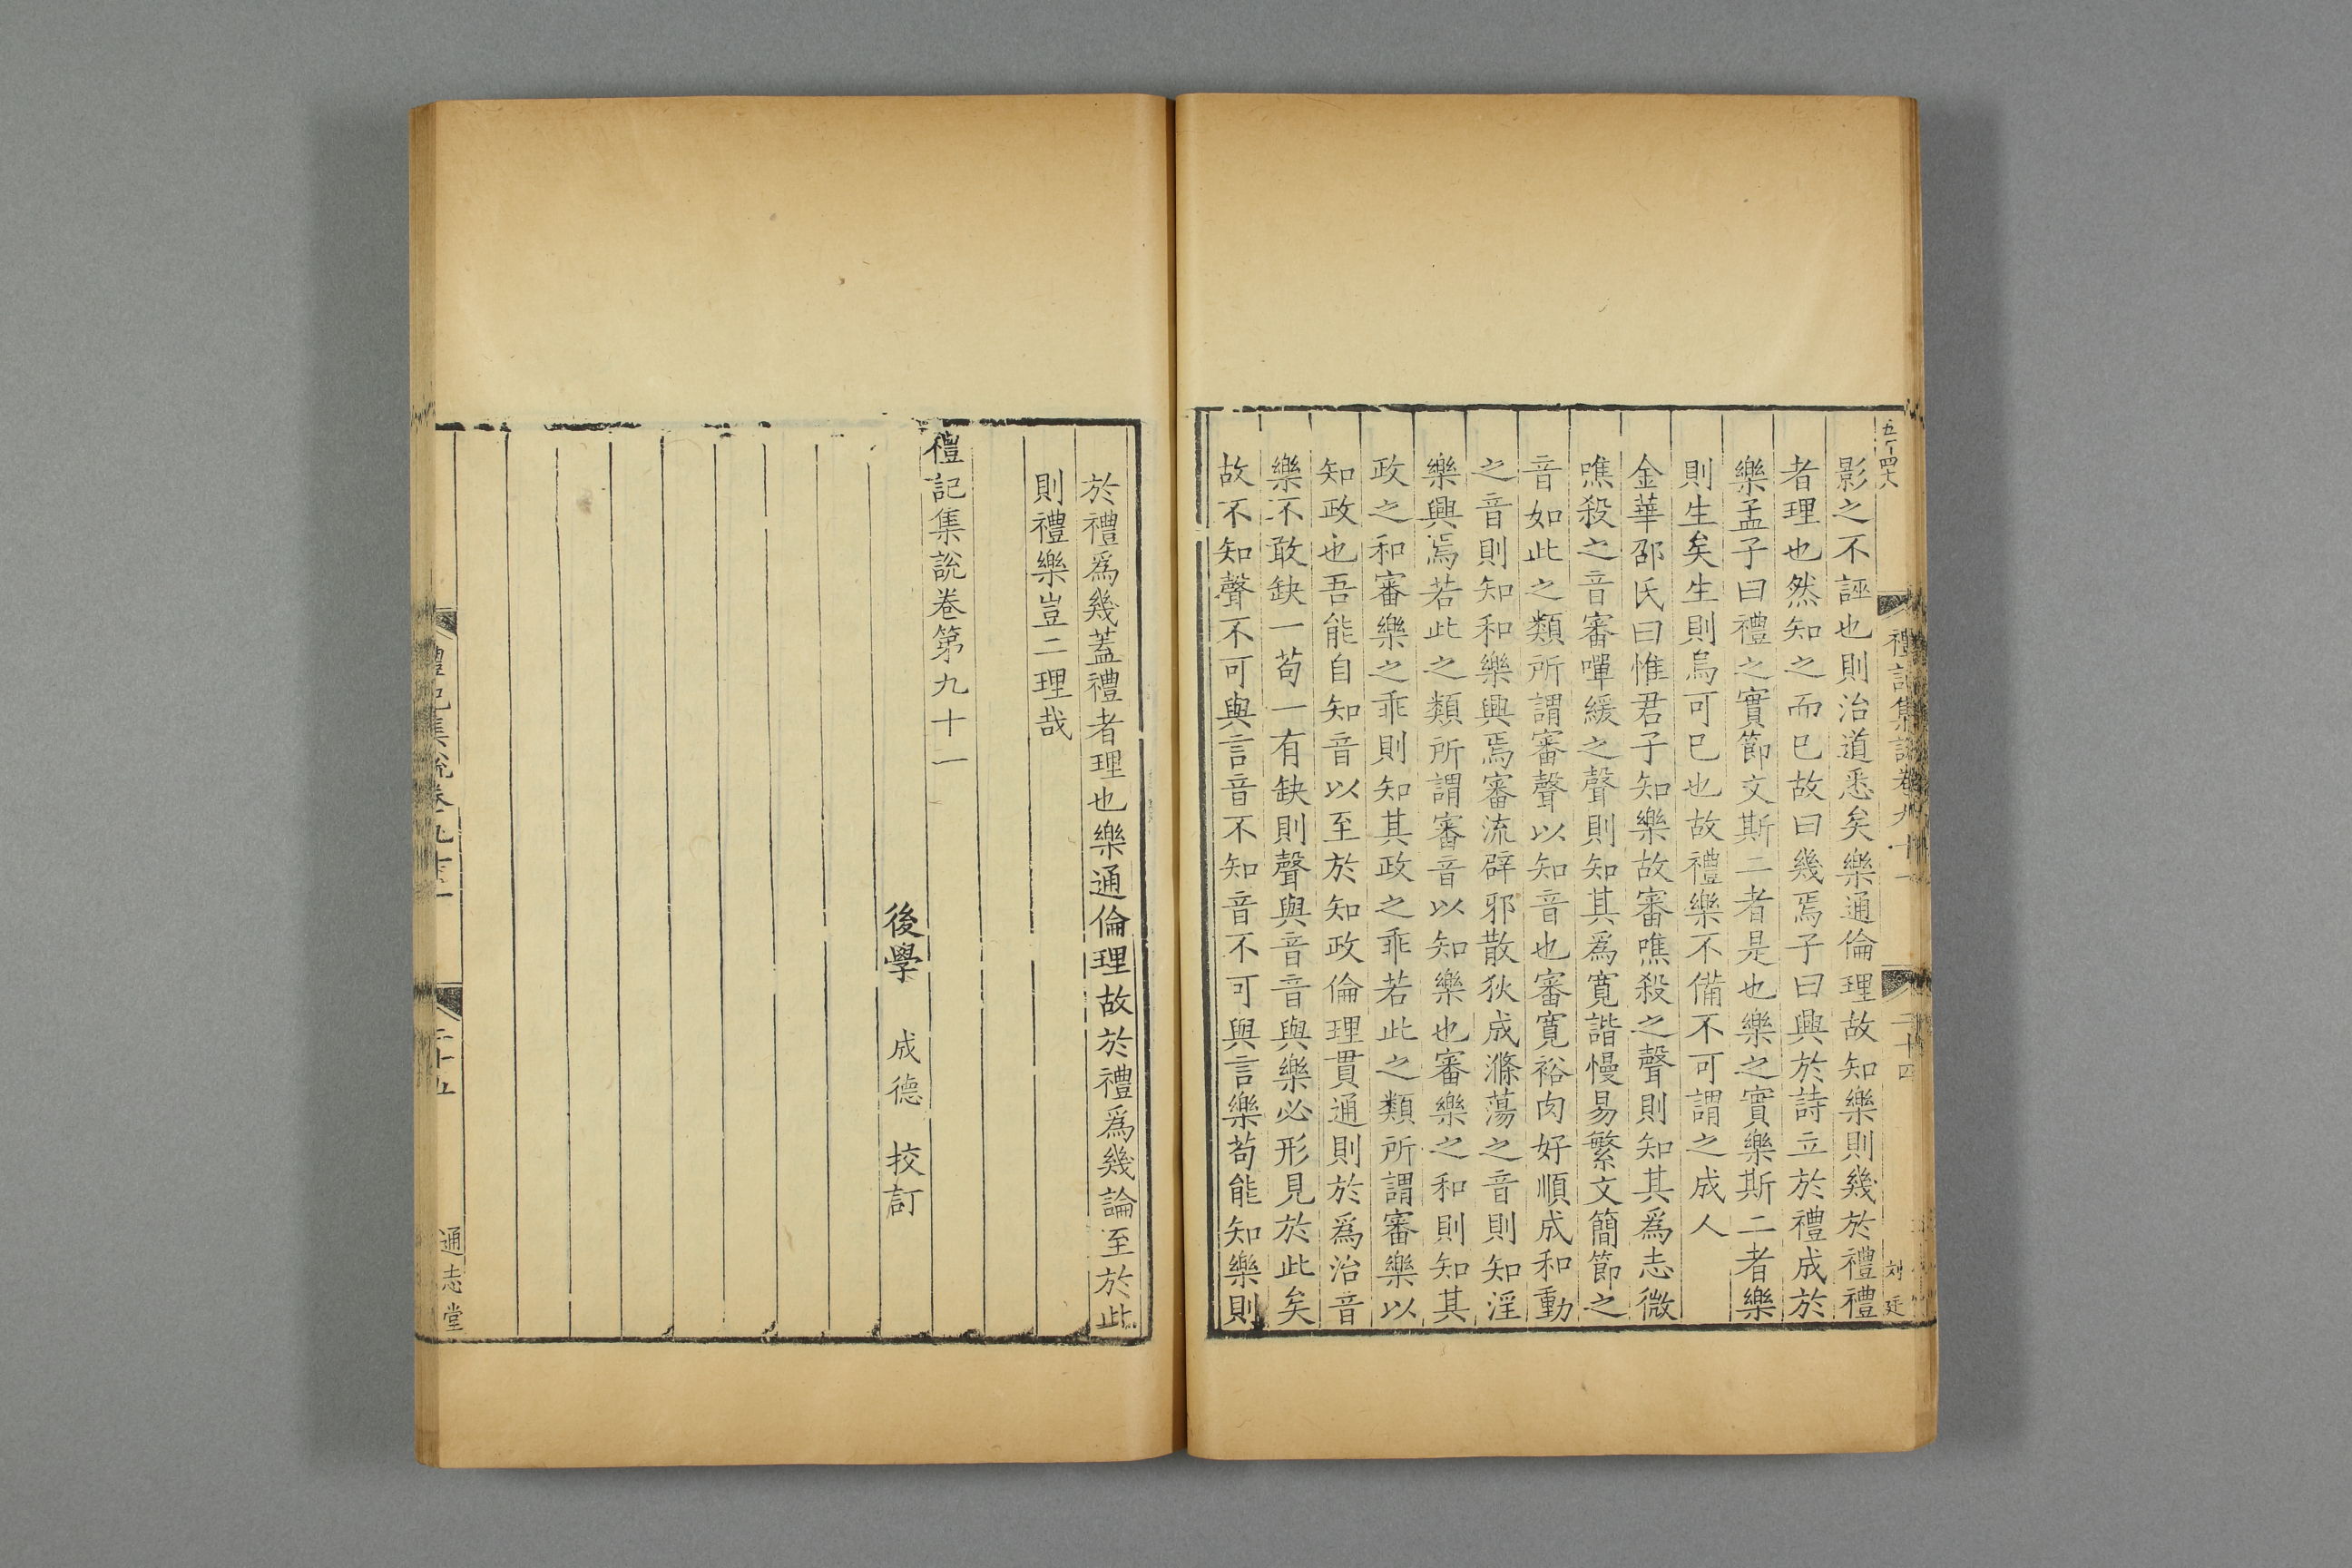 禮記集說卷九十一
二十四
影之不誣也則治道悉矣樂通倫理故知樂則幾於禮禮
者理也然知之而巳故曰幾焉子曰興於詩立於禮成於
樂孟子曰禮之實節文斯二者是也樂之實樂斯二者樂
則生矣生則烏可巳也故禮樂不備不可謂之成人
金華邵氏曰惟君子知樂故審噍殺之聲則知其爲志微
噍殺之音審嘽緩之聲則知其爲寛諧慢易繁文簡節之
音如此之類所謂審聲以知音也審寛裕肉好順成和動
之音則知和樂興焉審流辟邪散狄成滌蕩之音則知淫
樂興焉若此之類所謂審音以知樂也審樂之和則知其
政之和審樂之乖則知其政之乖若此之類所謂審樂以
知政也吾能自知音以至於知政倫理貫通則於爲治音
樂不敢缺一苟一有缺則聲與音音與樂必形見於此矣
故不知聲不可與言音不知音不可與言樂苟能知樂則
於禮爲幾蓋禮者理也樂通倫理故於禮爲幾論至於此
則禮樂豈二理哉
禮記集說卷第九十一
後學 成德 挍訂
禮記集說卷九十一
二十五
通志堂